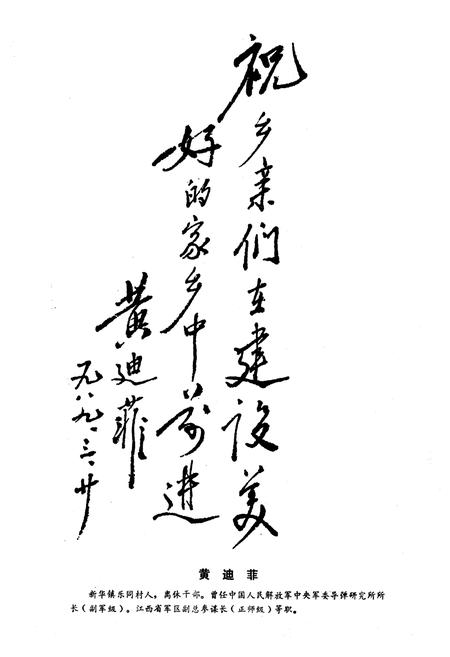 祝乡亲们在建设美
好的家乡中前进
黄迪菲
一九八九.三.廿
黄迪菲
新华镇乐同村人，离休干部。曾任中国人民解放军中央军委导弹研究所所
长（副军级）。江西省军区副总参谋长（正师级）等职。